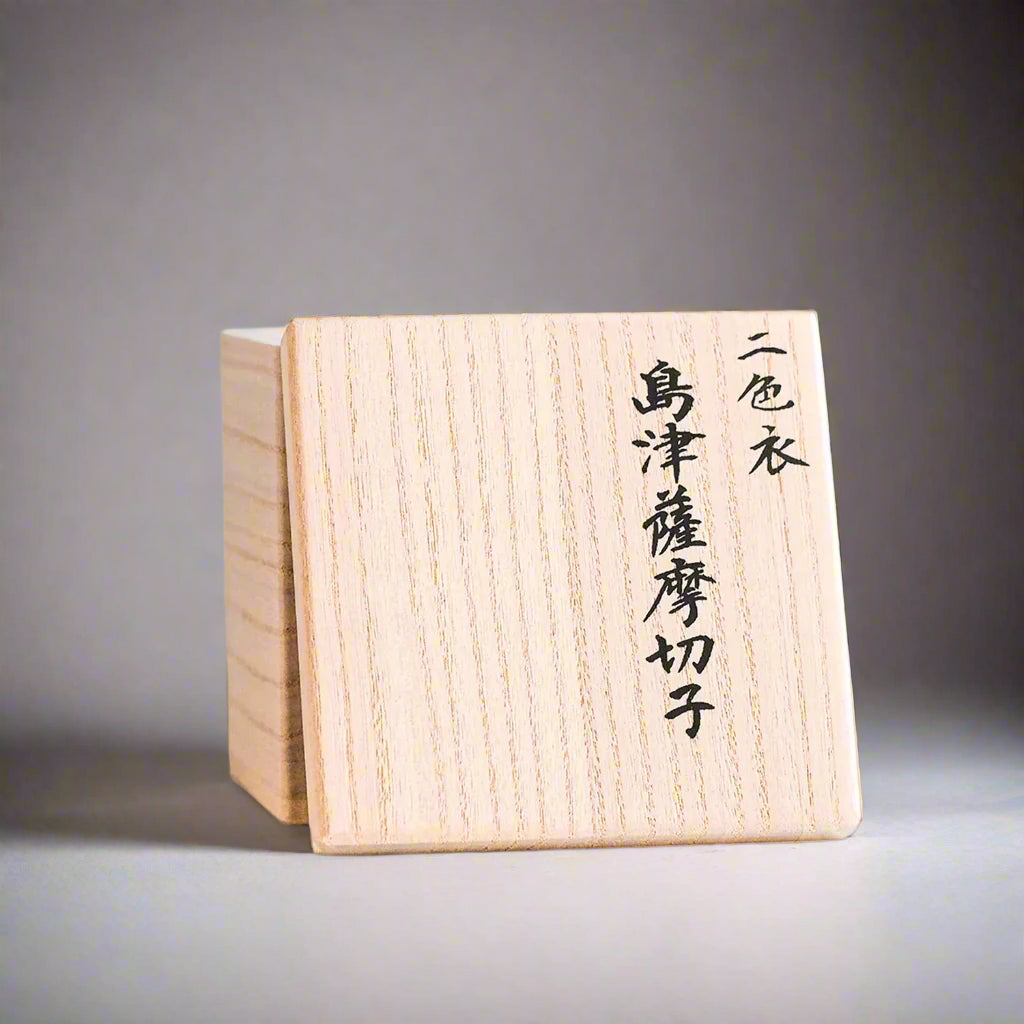 二色衣
島津薩摩切子